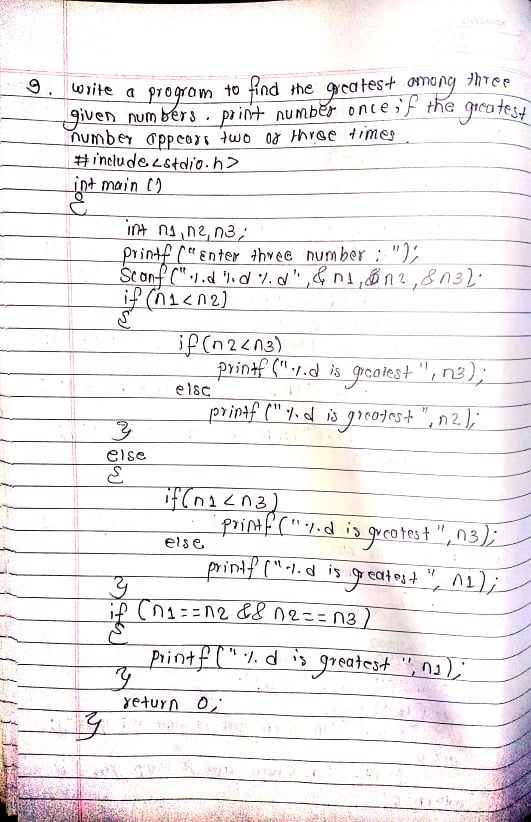 9. write a program to find the greatest among three
given numbers. print number once if the greatest
number appears two or three times
#include<stdio.h>
int main ()
{
int n1, n2, n3;
printf ("Enter three number : ");
Scanf ("%d %d %d", &n1, &n2, &n3);
if (n1<n2)
{
if (n2<n3)
printf ("%d is greatest", n3);
else
printf ("%d is greatest", n2);
}
else
{
if (n1<n3)
printf ("%d is greatest", n3);
else
printf ("%d is greatest", n1);
}
if (n1==n2 && n2==n3)
{
printf ("%d is greatest", n1);
}
return 0;
}